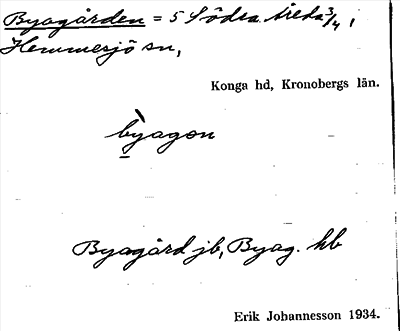 Byagården = 5 Södra Åreda 3/4,
Hemmesjö sn,
Konga hd, Kronobergs län.
býagon
Byagård jb, Byag. hb
Erik Johannesson 1934.